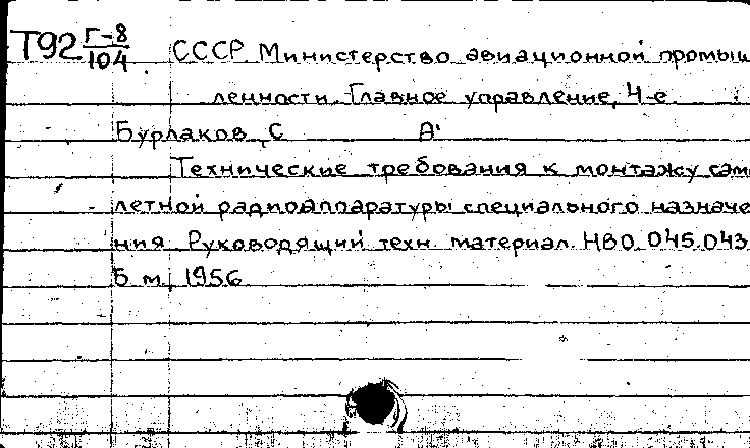 Т92 Г-8/104 СССР Министерство авиационной промыш
ленности. Главное управление, 4-е.
Бурлаков, С А.
Технические требования к монтажу сам
летной радиоаппаратуры специального назначе
ния Руководящий техн. материал. НВО.045.043
Б м, 1956